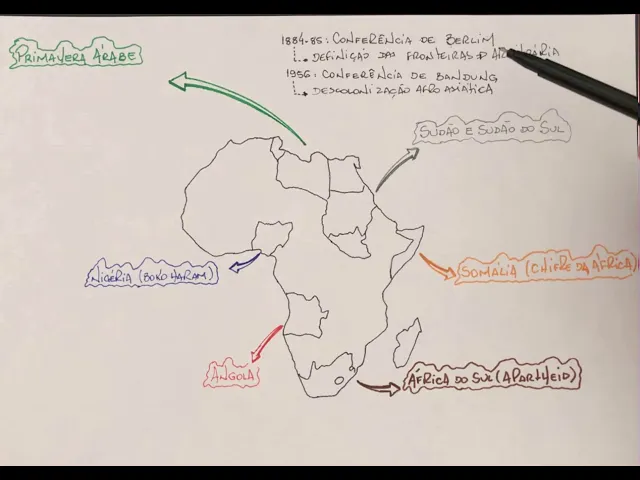 1884-85: CONFERÊNCIA DE BERLIM
DEFINIÇÃO DAS FRONTEIRAS
1956: CONFERÊNCIA DE BANDUNG
DESCOLONIZAÇÃO AFRO ASIÁTICA
PRIMAVERA ÁRABE
SUDÃO E SUDÃO DO SUL
NIGÉRIA (BOKO HARAM)
SOMÁLIA (CHIFRE DA ÁFRICA)
ANGOLA
ÁFRICA DO SUL (APARTHEID)